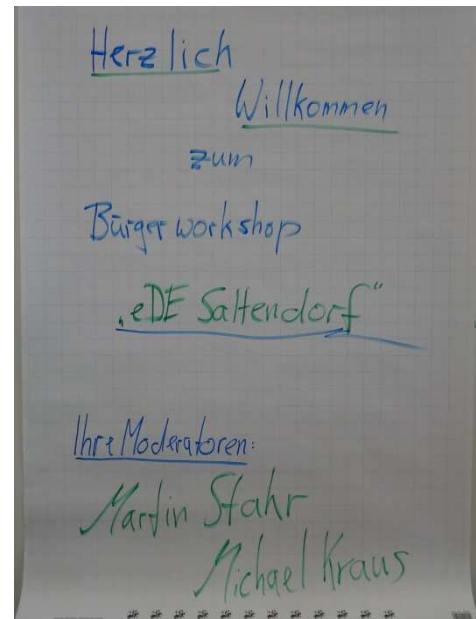 Herzlich
Willkommen
zum
Bürgerworkshop
„eDE Saltendorf"
Ihre Moderatoren:
Martin Stahr
Michael Kraus